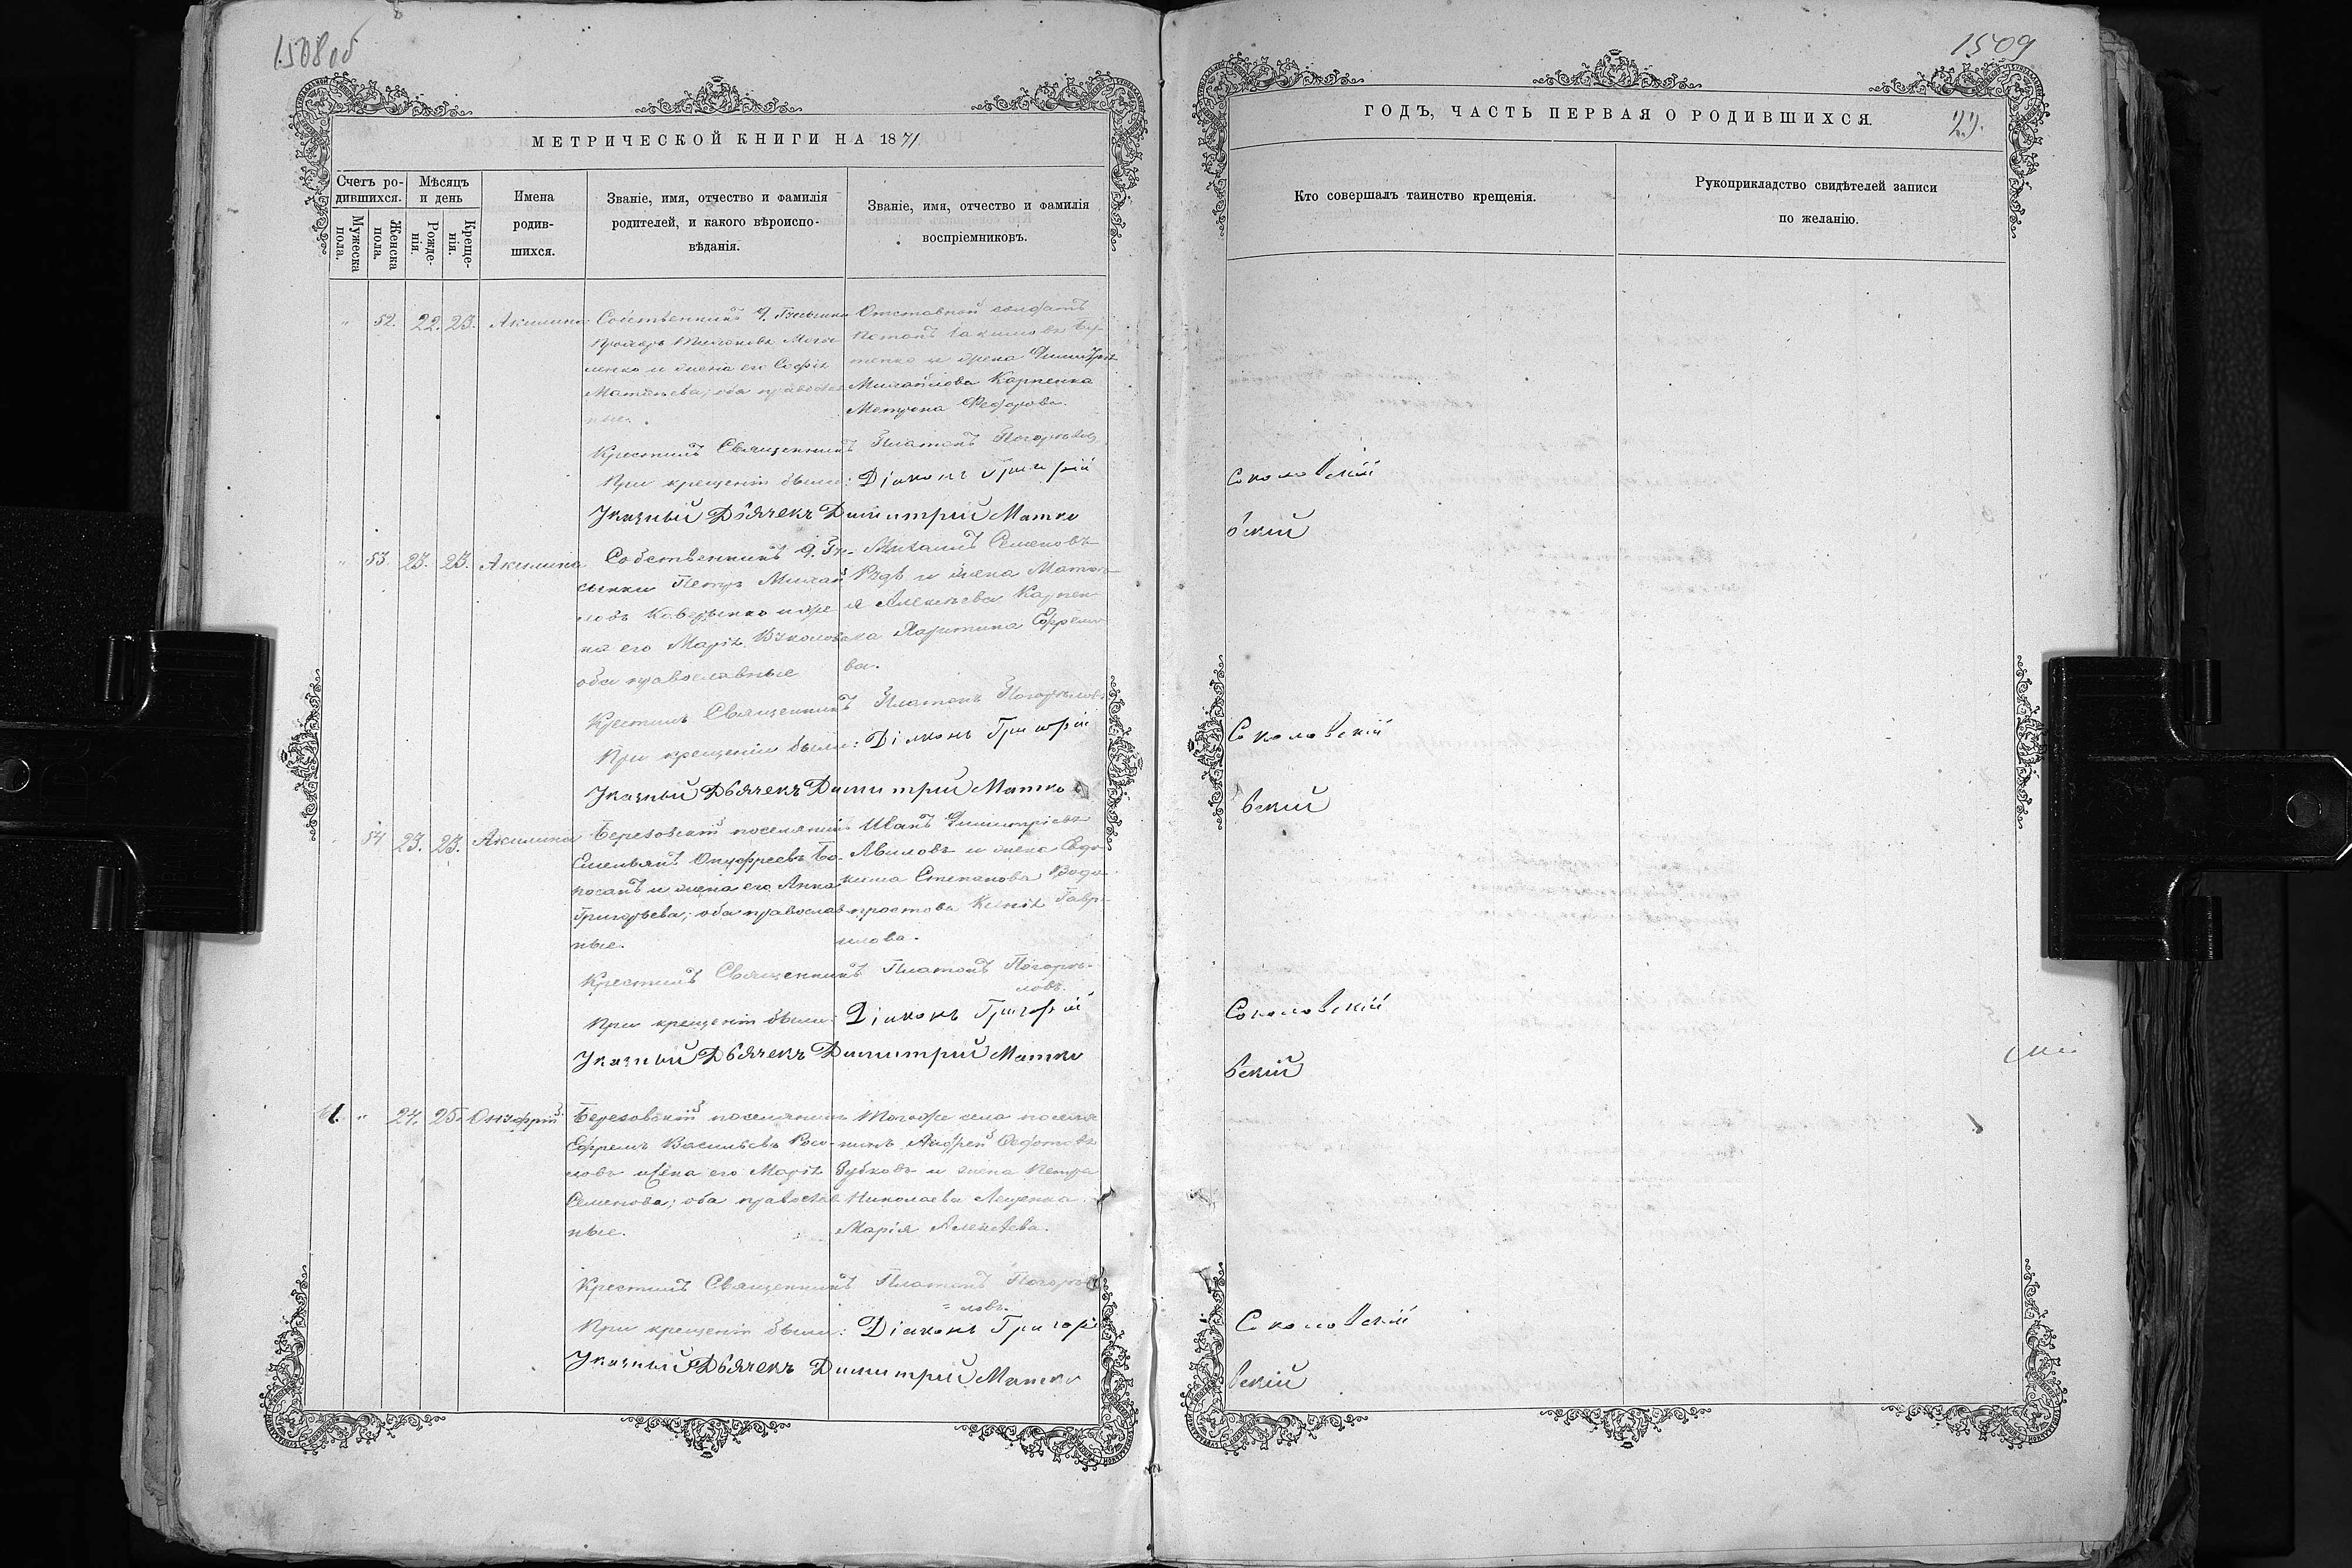 1508 об
МЕТРИЧЕСКОЙ КНИГИ НА 1871
Счетъ ро-
дившихся.
Мѣсяцъ
и день
Мужеска
пола.
Женска
пола.
Рожде-
нія.
Креще-
нія.
Имена
родив-
шихся.
Званіе, имя, отчество и фамилія
родителей, и какого вѣроиспо-
вѣданія.
Званіе, имя, отчество и фамилія
воспріемниковъ.
" 52. 22. 23. Акилина
Собственникъ д.
и жена его Софія
Матвѣева; оба православ
ные.
Отставной солдатъ
Потапъ
и жена
Михайлова Карпенка
Матрона Федорова.
Крестилъ Священникъ Платонъ Погорѣловъ
При крещеніи были: Діаконъ Григорій
Указный Дьячекъ Димитрій Матко
" 53. 23. 23. Акилина
Собственникъ д. Гу-
сынки Петръ Михай
ловъ и же
на его Марія
оба православные
Михаилъ Семеновъ
и жена
я Алексѣева Карпен
ка Харитина Ефремо
ва.
Крестилъ Священникъ Платонъ Погорѣловъ
При крещеніи были: Діаконъ Григорій
Указный Дьячекъ Димитрій Матко
" 54 23. 23. Акилина
Березовскій поселянинъ
Емельянъ Онуфріевъ Бо-
и жена его Анна
Григорьева; оба православ
ные.
Иванъ Димитріевъ
Авиловъ и жена Евдо
кима Степанова Водо
простова Ксенія Гаври
лова.
Крестилъ Священникъ Платонъ Погорѣ-
ловъ.
При крещеніи были: Діаконъ Григорій
Указный Дьячекъ Димитрій Матко
" 24. 25. Онуфрій
Березовскій поселянинъ
Ефремъ Васильевъ
и жена его Марія
Семенова; оба православ
ные.
Тогоже села поселя
нинъ Андрей Федотовъ
Зубковъ и жена Петра
Николаева Лещенка
Марія Алексѣева.
Крестилъ Священникъ Платонъ Погорѣ
= ловъ.
При крещеніи были: Діаконъ Григорі
Указный Дьячекъ Димитрій Матко
1509
ГОДЪ, ЧАСТЬ ПЕРВАЯ О РОДИВШИХСЯ.
Кто совершалъ таинство крещенія.
Рукоприкладство свидѣтелей записи
по желанію.
Соколовскій
вскій
Соколовскій
вскій
Соколовскій
вскій
Соколовскій
вскій